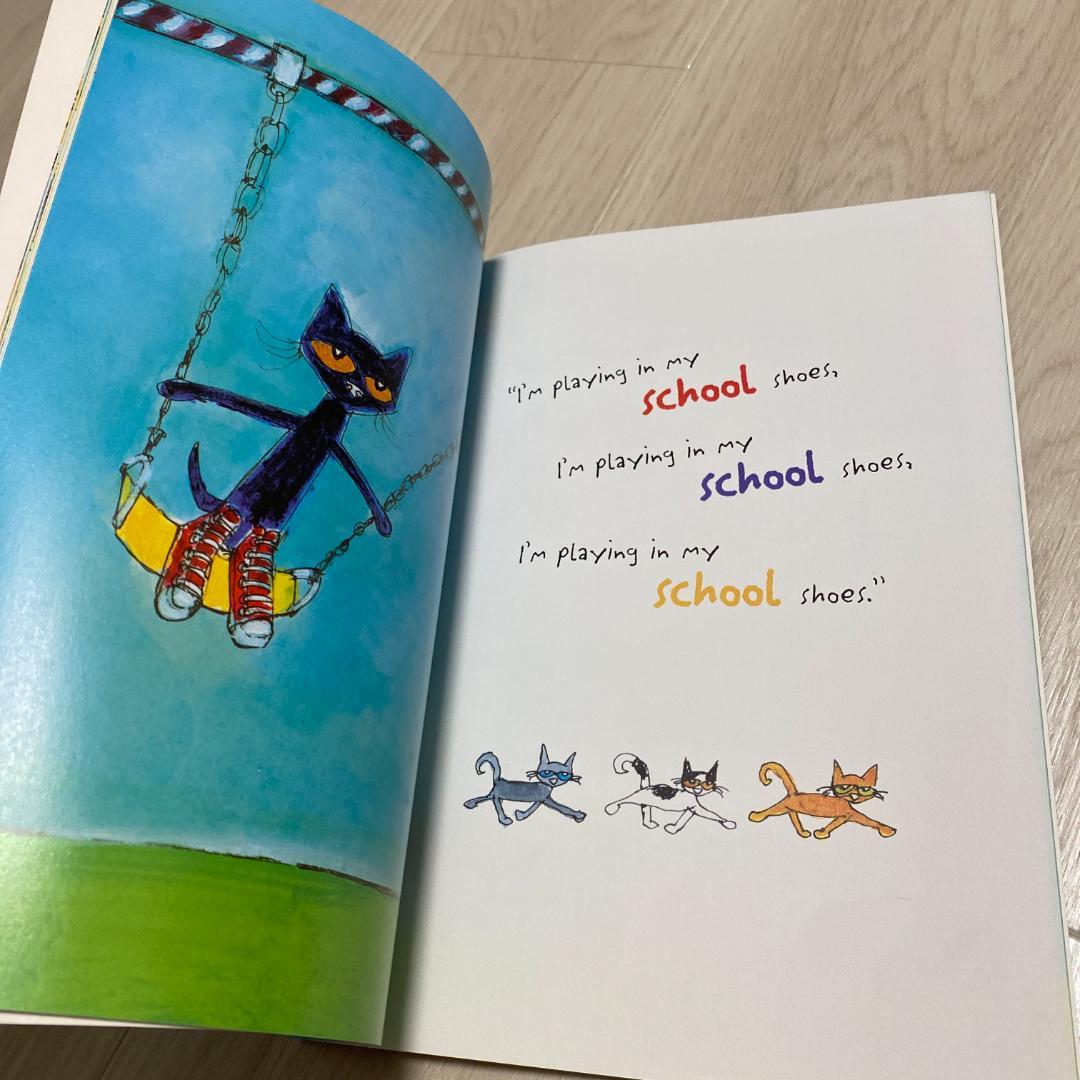 "I'm playing in my
school shoes,
I'm playing in my
school shoes,
I'm playing in my
school shoes."